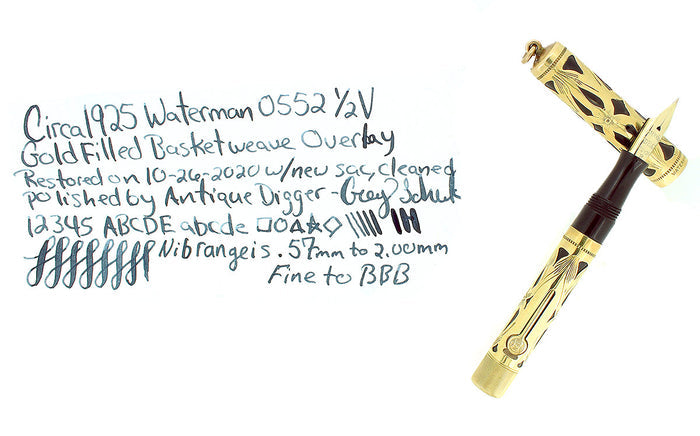 Circa 1925 Waterman 0552 1/2V
Gold Filled Basketweave Overlay
Restored on 10-26-2020 w/new sac, cleaned
polished by Antique Digger - Greg
12345 ABCDE abcde
Nib range is .57mm to 2.00mm
Fine to BBB